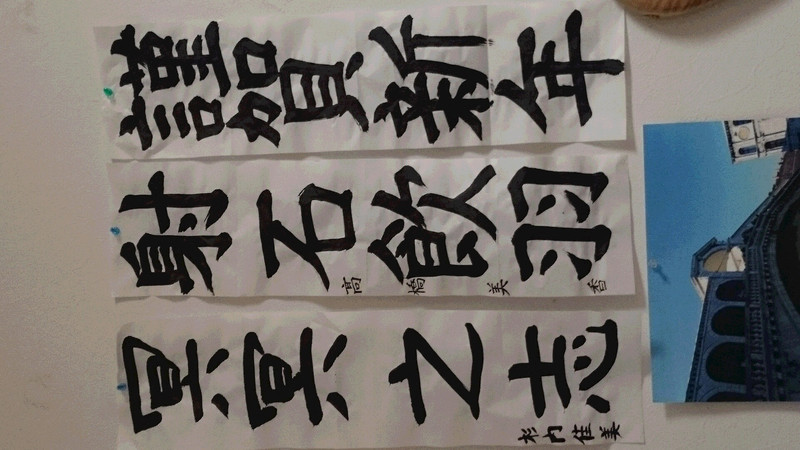 謹賀新年
射石飲羽
高橋美香
冥冥之志
杉内佳美